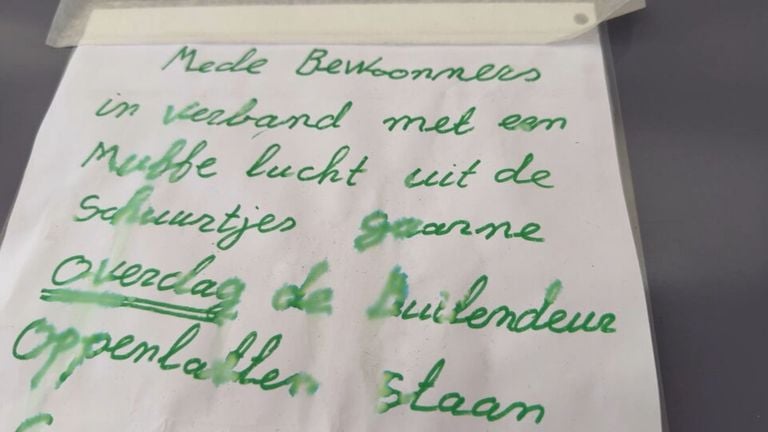 Mede Bewoonners
in verband met een
Muffe lucht uit de
Schuurtjes gaarne
Overdag de Buitendeur
Oppenlatten staan